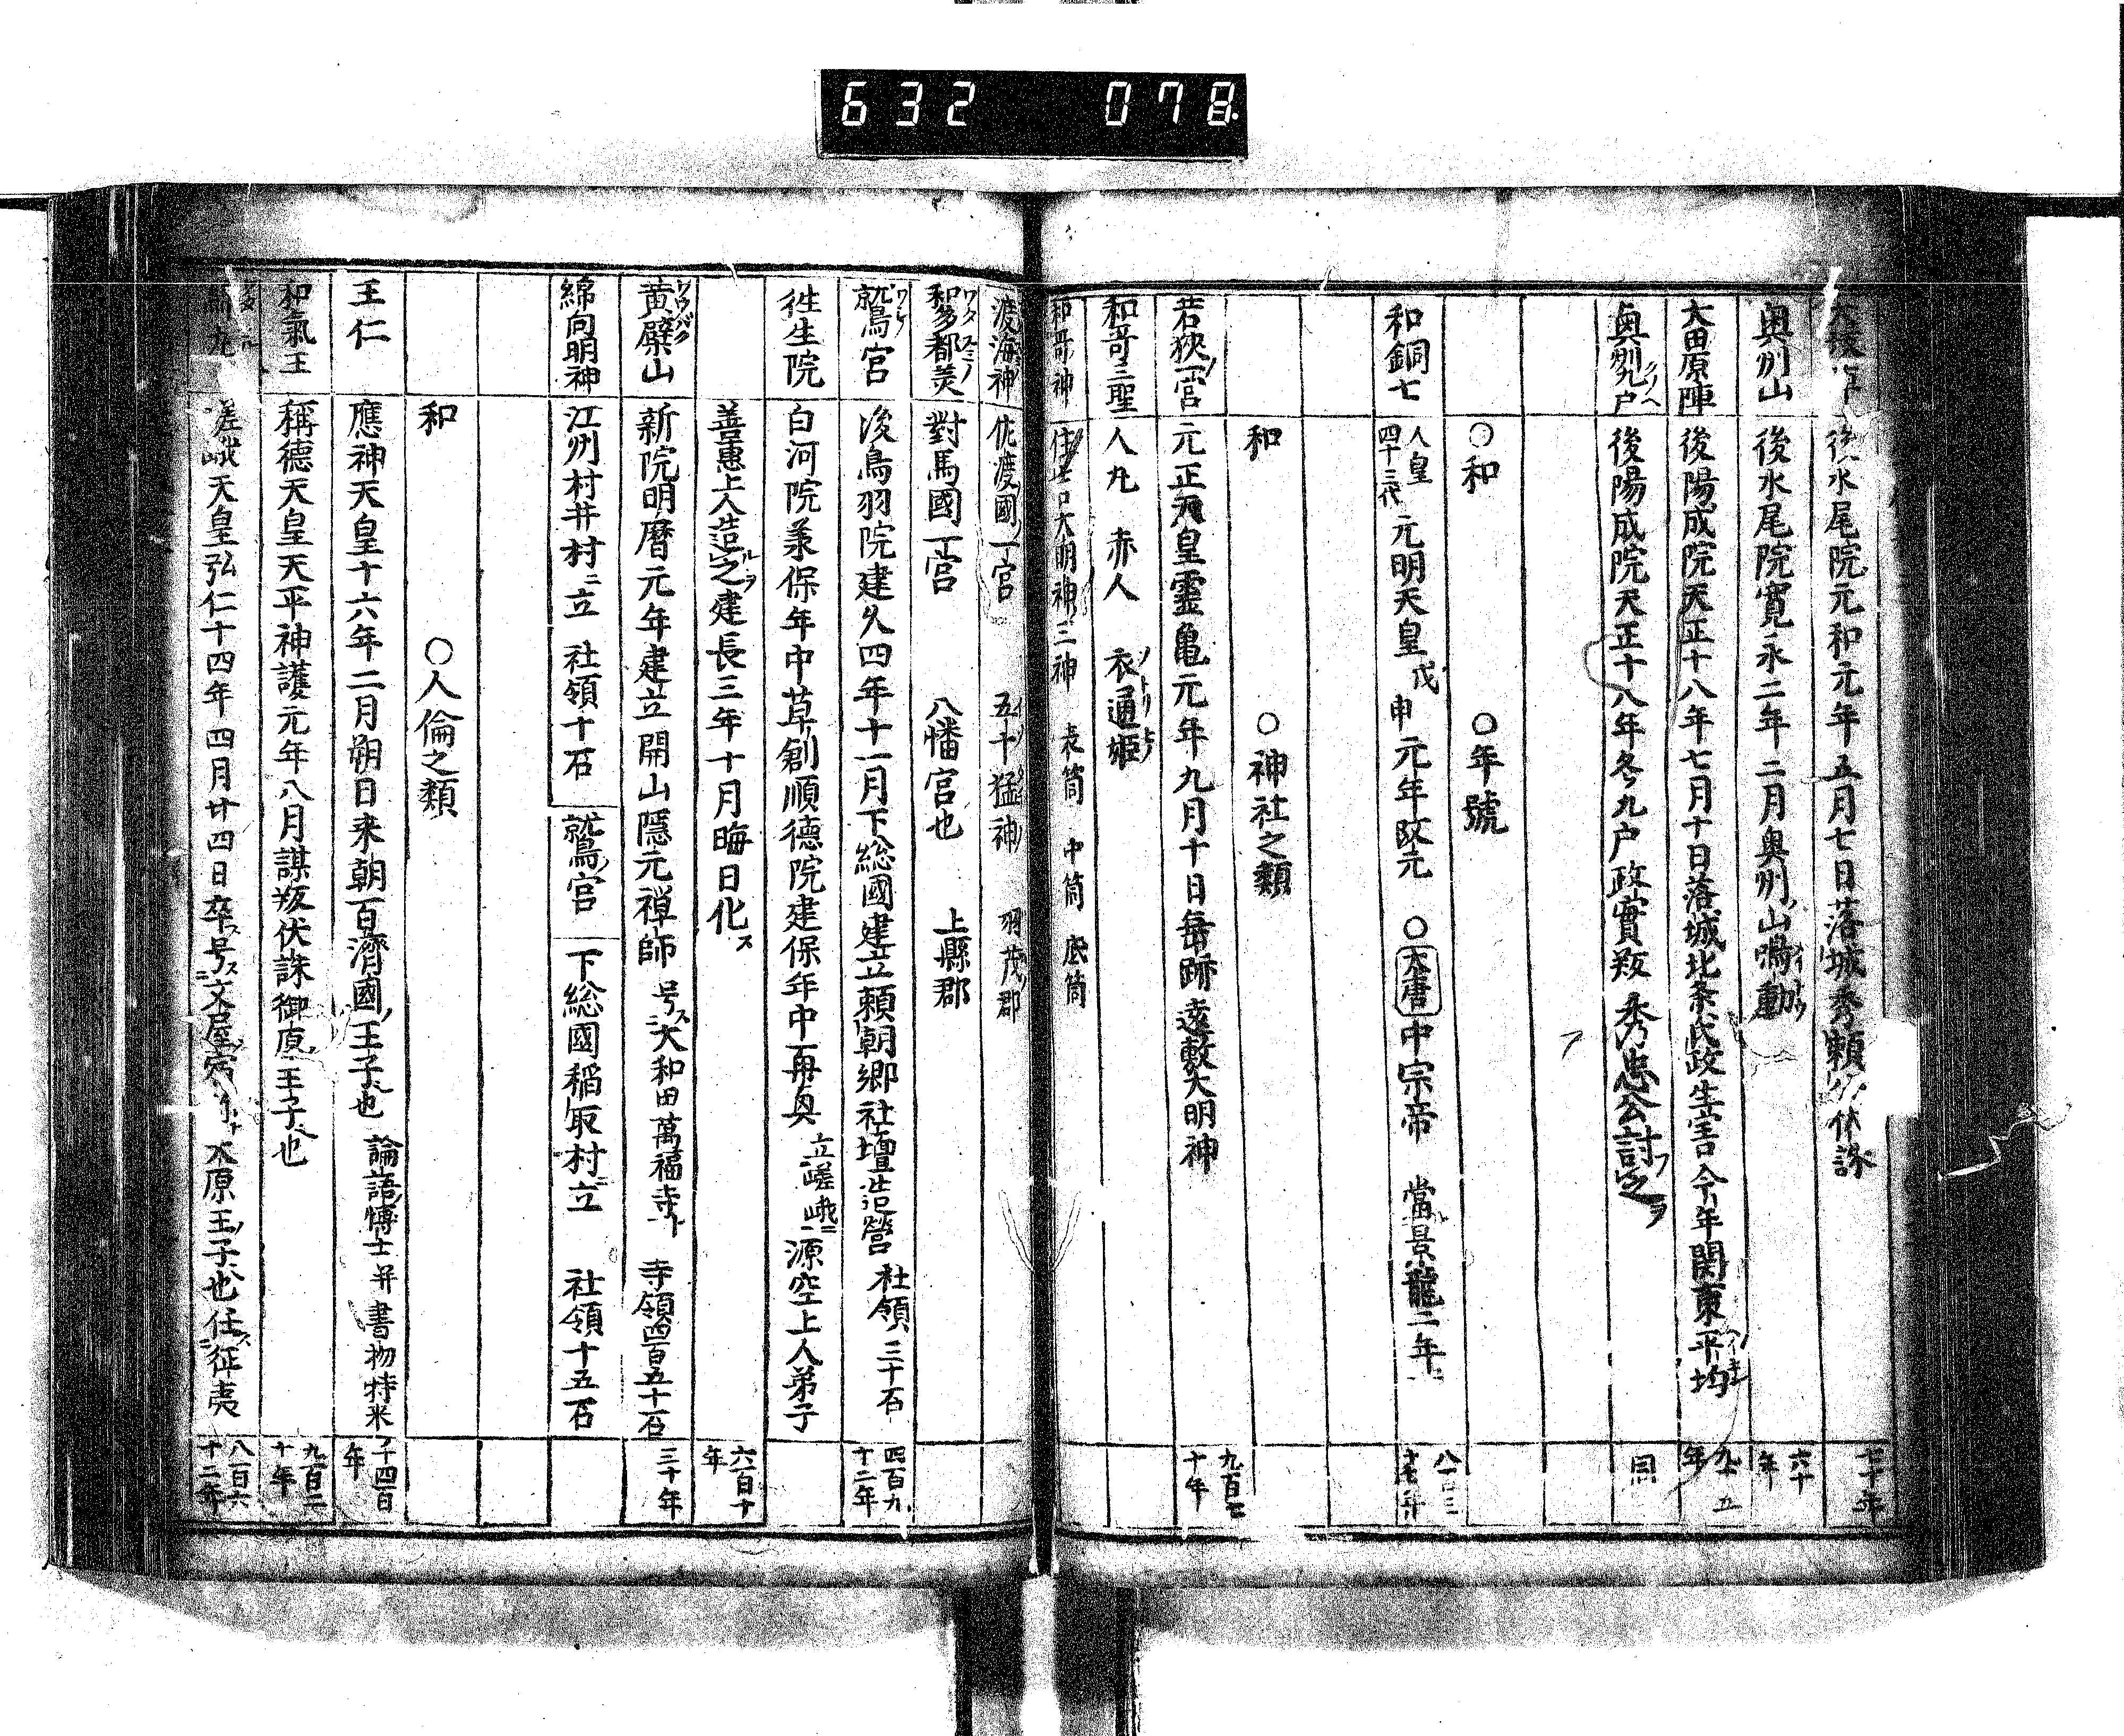 632 078
後水尾院元和元年五月七日落城秀頼公 誅 七十年
奥州山 後水尾院寛永二年二月奥州山鳴動 六十年
大田原陣 後陽成院天正十八年七月十日落城北条氏政生害今年関東平均 九十五年
奥州九戸 後陽成院天正十八年冬九戸政實叛 秀忠公討之 同
○和 ○年號
和銅七 人皇四十三代 元明天皇 戊申 元年改元 ○大唐中宗帝 當景龍二年
和 ○神社之類
若狹一宮 元正天皇霊亀元年九月十日垂跡遠敷大明神 九百七十年
和哥三聖 人丸 赤人 衣通姫
和哥神 住吉大明神三神 表筒 中筒 底筒
渡海神 佐渡國一宮 五十猛神 羽茂郡
和多都美 對馬國一宮 八幡宮也 上縣郡
鷲宮 後鳥羽院建久四年十一月下総國建立頼朝郷社壇造營 社領三十石 四百九十二年
往生院 白河院承保年中草創順徳院建保年中再興 立嵯峨 源空上人弟子
善惠上人造之建長三年十月晦日化ス 六百十年
黄檗山 新院明暦元年建立開山隠元禅師 号大和田萬福寺 寺領四百五十石 三十年
綿向明神 江州村井村ニ立 社領十石 鷲宮 下総國稲取村立 社領十五石
和 ○人倫之類
王仁 應神天皇十六年二月朔日来朝百濟國王子也 論語博士并書物特来 千四百年
和氣王 稱德天皇天平神護元年八月謀叛伏誅御原王子也 九百二十年
綿丸 嵯峨天皇弘仁十四年四月廿四日卒ス号ス文屋 大原王子也任征夷 八百六十二年